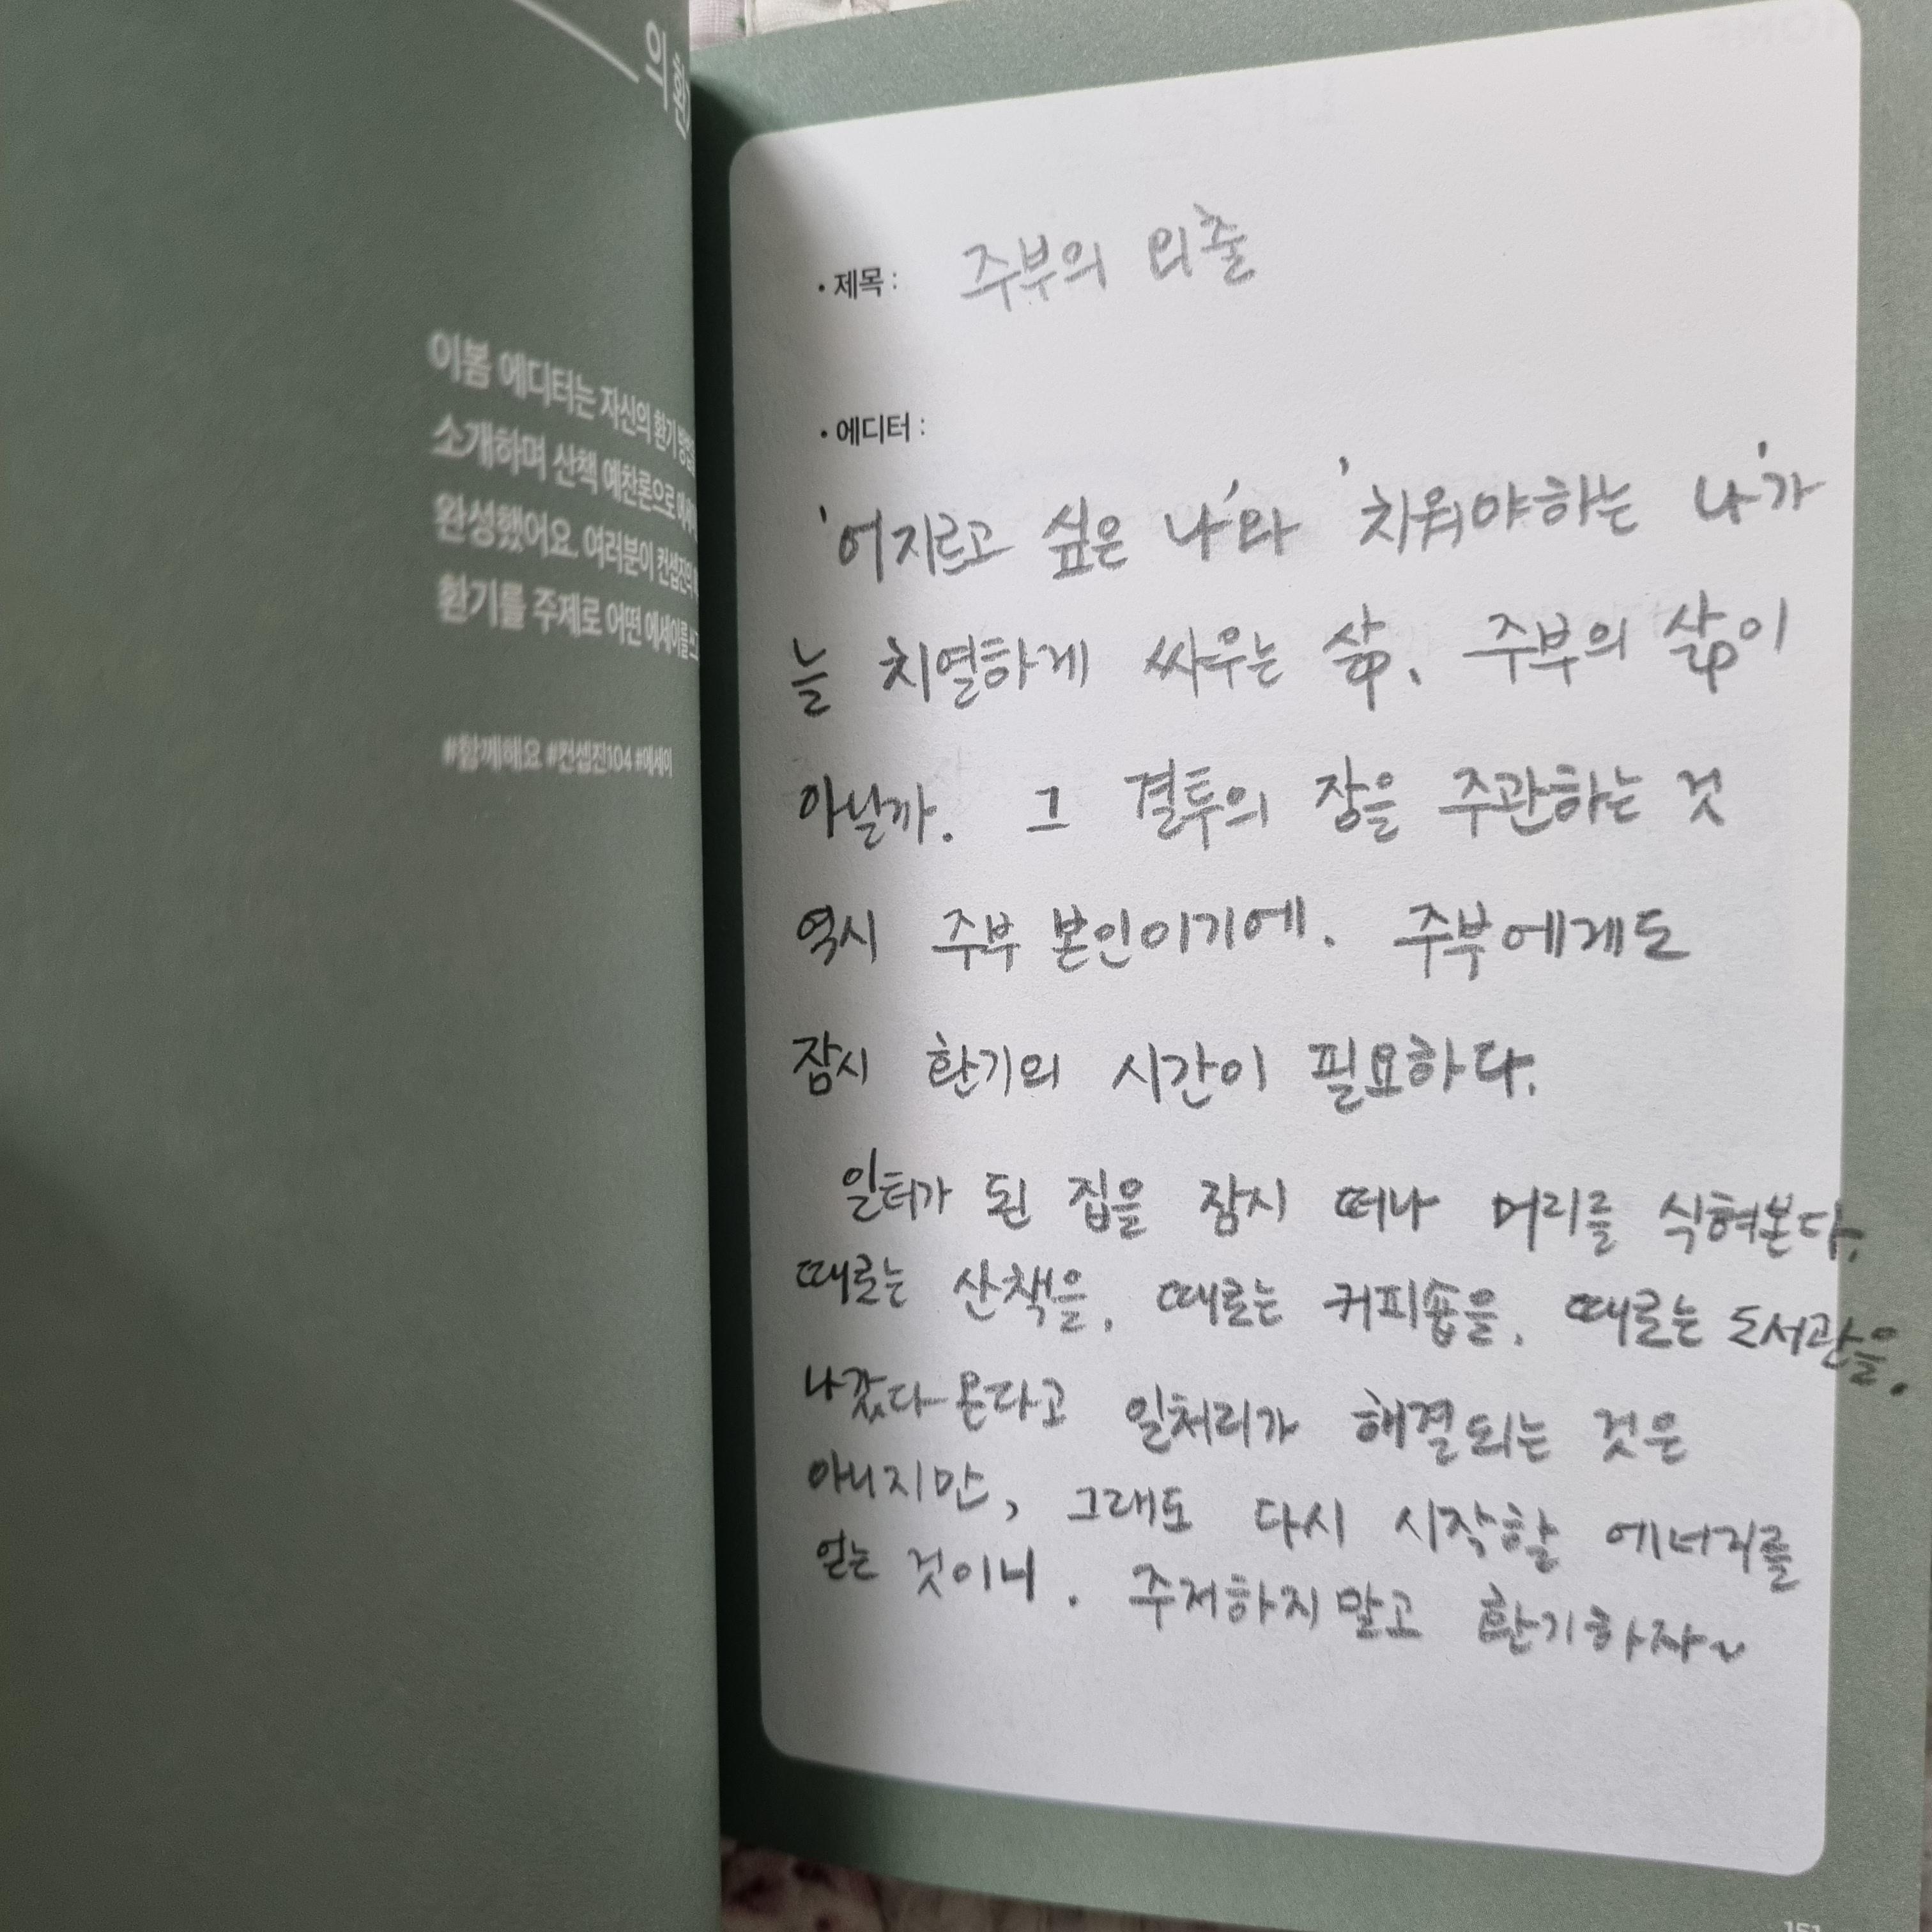 의 환
이봄 에디터는 자신의 환기 방법
소개하며 산책 예찬론으로 에세이
완성했어요. 여러분이 컨셉진의
환기를 주제로 어떤 에세이를 쓰
#함께해요 #컨셉진104 #에세이
• 제목 : 주부의 외출
• 에디터 :
'어지르고 싶은 나'와 '치워야하는 나'가
늘 치열하게 싸우는 삶. 주부의 삶이
아닐까. 그 결투의 장을 주관하는 것
역시 주부 본인이기에. 주부에게도
잠시 환기의 시간이 필요하다.
일터가 된 집을 잠시 떠나 머리를 식혀본다.
때로는 산책을, 때로는 커피숍을, 때로는 도서관을.
나갔다 온다고 일처리가 해결되는 것은
아니지만, 그래도 다시 시작할 에너지를
얻는 것이니. 주저하지 말고 환기하자~
151